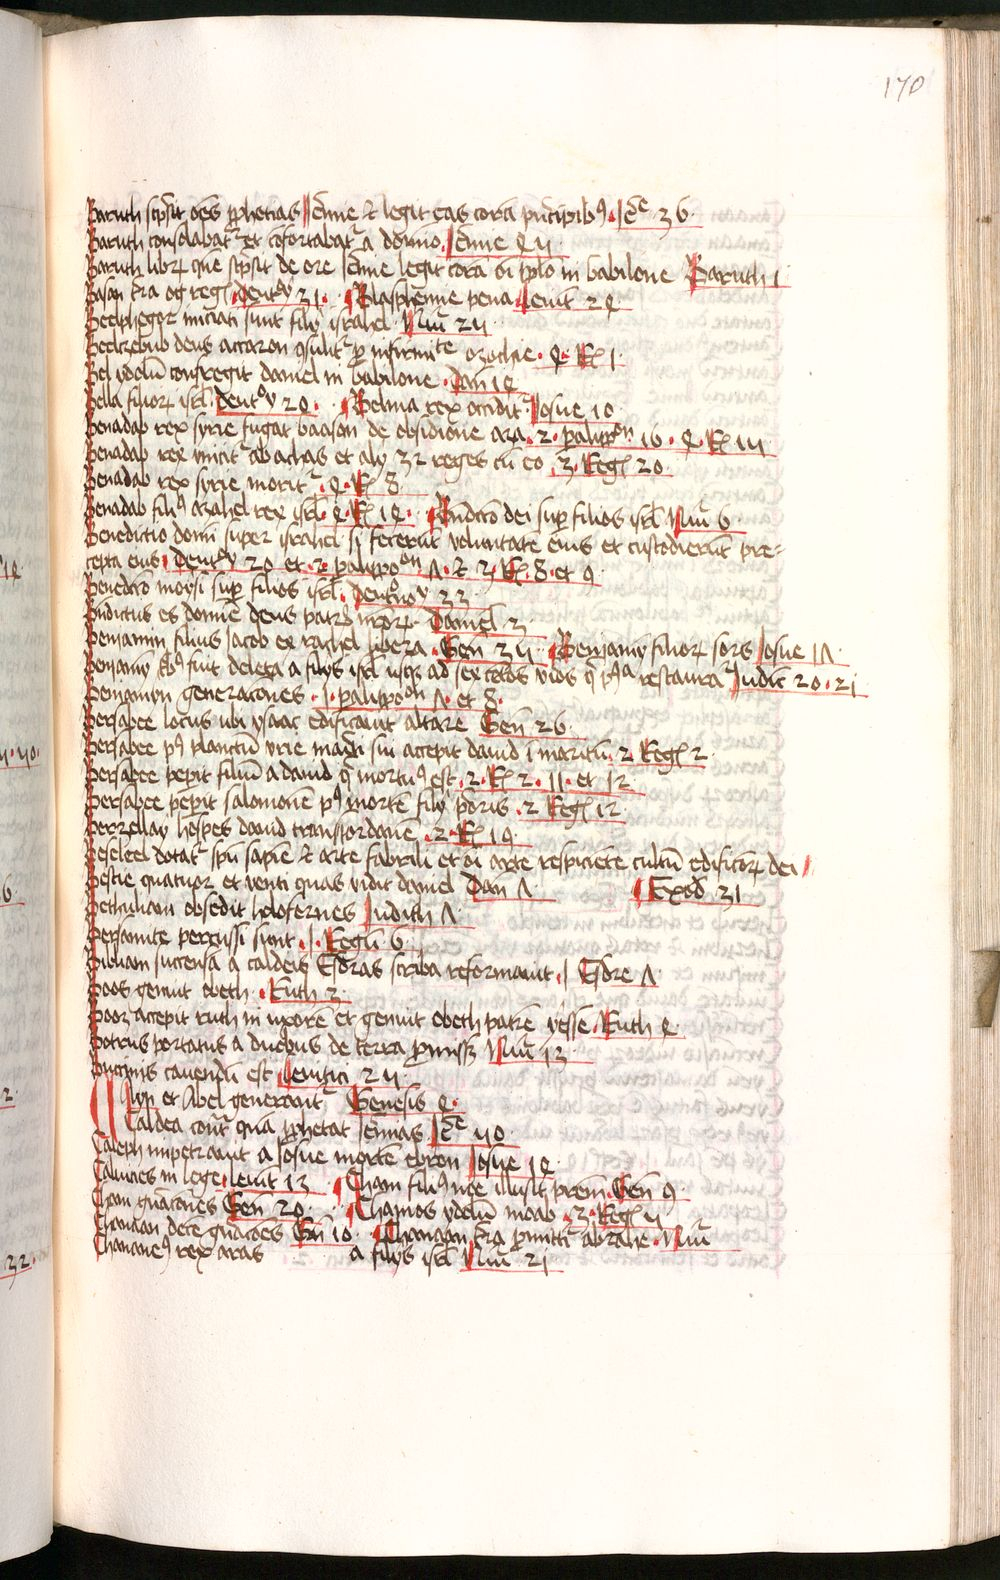 170
Baruth scpsit oēs ꝓphetias Jeremie ⁊ legit eas corā principibꝰ . Jerē 36
Baruth consolabat᷑ et cōfortabat᷑ a domino . Jeremie 45
Baruth libꝝ quē scpsit de ore Jeremie legit corā oī pplo in babilone Baruth 1
Basan tra og regꝭ . deutͦ 31 . Blasphemie pena Leuit 24
Beelphegor iniciati sunt filij israhel . Nūi 25
Beelzebub deus accaron ꝯsulit᷑ ꝑ infirmitate ozochie . 4 . Rꝭ 1 .
Bel ydolū confregit daniel in babilone . Dan̄ 14
Bella filioꝝ isrl . deutͦ 20 . Belma rex occidit᷑ . Josue 10
Benadab rex syrie fugat baason de obsidione aza . 2 . paralipoͫ 16 . 4 . Rꝭ
Benadab rex vincit᷑ ab achas et alij 32 reges cū eo . 3 . Regꝭ 20 .
Benadab rex syrie morit᷑ . 4 . Rꝭ 8 .
Benadab filiꝰ azahel rex isrl . 4 . Rꝭ 14 . Bndictio dei suꝑ filios isrl Nūi 6
Benedictio domini super israhel si fecerūt voluntate eius et custodierūt pre-
cepta eius . deutͦ 20 et . 2 . paralipoͫ 7 . ⁊ 3 . Rꝭ . 8 . et 9 .
Benedictio moysi suꝑ filios isrl . deutroͦ 33
Bndictus es domine deus patrꝭ nroꝝ . Daniel 3
Beniamin filius Jacob ex rachel libera . Gen̄ 35 . Benjamȳ filioꝝ sors Josue 17
Benjamȳ tribꝰ fuit deleta a filijs isrl usqꝫ ad sexcetos viros restaurat᷑ Judic̄ 20 . 21
Benjamyn generacōnes . 1 . paralipoͫ 7 . et 8 .
Bersabee locus ubi ysaac edificauit altare Gen̄ 26 .
Bersabee pꝰ planctū vrie mariti sui accepit dauid ī maritū . 2 Regꝭ 2 .
Bersabee peperit filiū a dauid q̄ mortuꝰ est . 2 . Rꝭ 2 . 11 . et 12 .
Bersabee peperit salomonē pꝰ mortē filij prioris . 2 Regꝭ 12 .
Berzellay hospes dauid trans Jordanē . 2 . Rꝭ 19 .
Beseleel dotat᷑ spū sapie ⁊ arte fabrili et oī arte respiciēte cultū edificioꝝ dei
Bestie quatuor et venti quas vidit daniel Dan̄ 7 . Exod̄ 31
Bethuliam obsedit holofernes Judith 7
Bersamite percussi sunt . 1 . Regū 6
Bibliam succensā a caldeis Esdras scriba reformauit . 1 Esdre 7
Boos genuit obeth . Ruth 3
Booz accepit ruth in uxorē et genuit obeth patrē yesse . Ruth 4 .
Botrus portatus a duobus de terra ꝓmissiōis Nūi 13
cauendū est Leuitici 25
Cayn et Abel generant᷑ Genesis 4 .
Caldea contra quā ꝓphetat Jeremias Jerē 50 .
Caleph impetrauit a Josue montē ebron Josue 14
Caluicies in lege . Leuit 13 . Cham filiꝰ noe illusit patrem . Gen̄ 9
Cham gnacōnes Gen̄ 20 . Chamos ydolū moab . 3 . Regꝭ
Chanaan decē gnacōes Gen̄ 10 . Chanaan tra ꝓmittit᷑ abrahe . Nūi
Chananeꝰ rex aras a filijs isrl Nūi 21